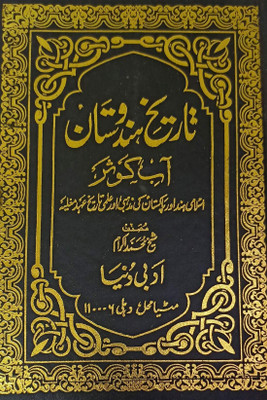 تاریخ ہندوستان
آبِ کوثر
اسلامی ہند اور پاکستان کی مذہبی اور علمی تاریخ عہد مغلیہ
مصنف
شیخ محمد اکرام
ادبی دنیا
مٹیا محل دہلی ۱۱۰۰۰۶